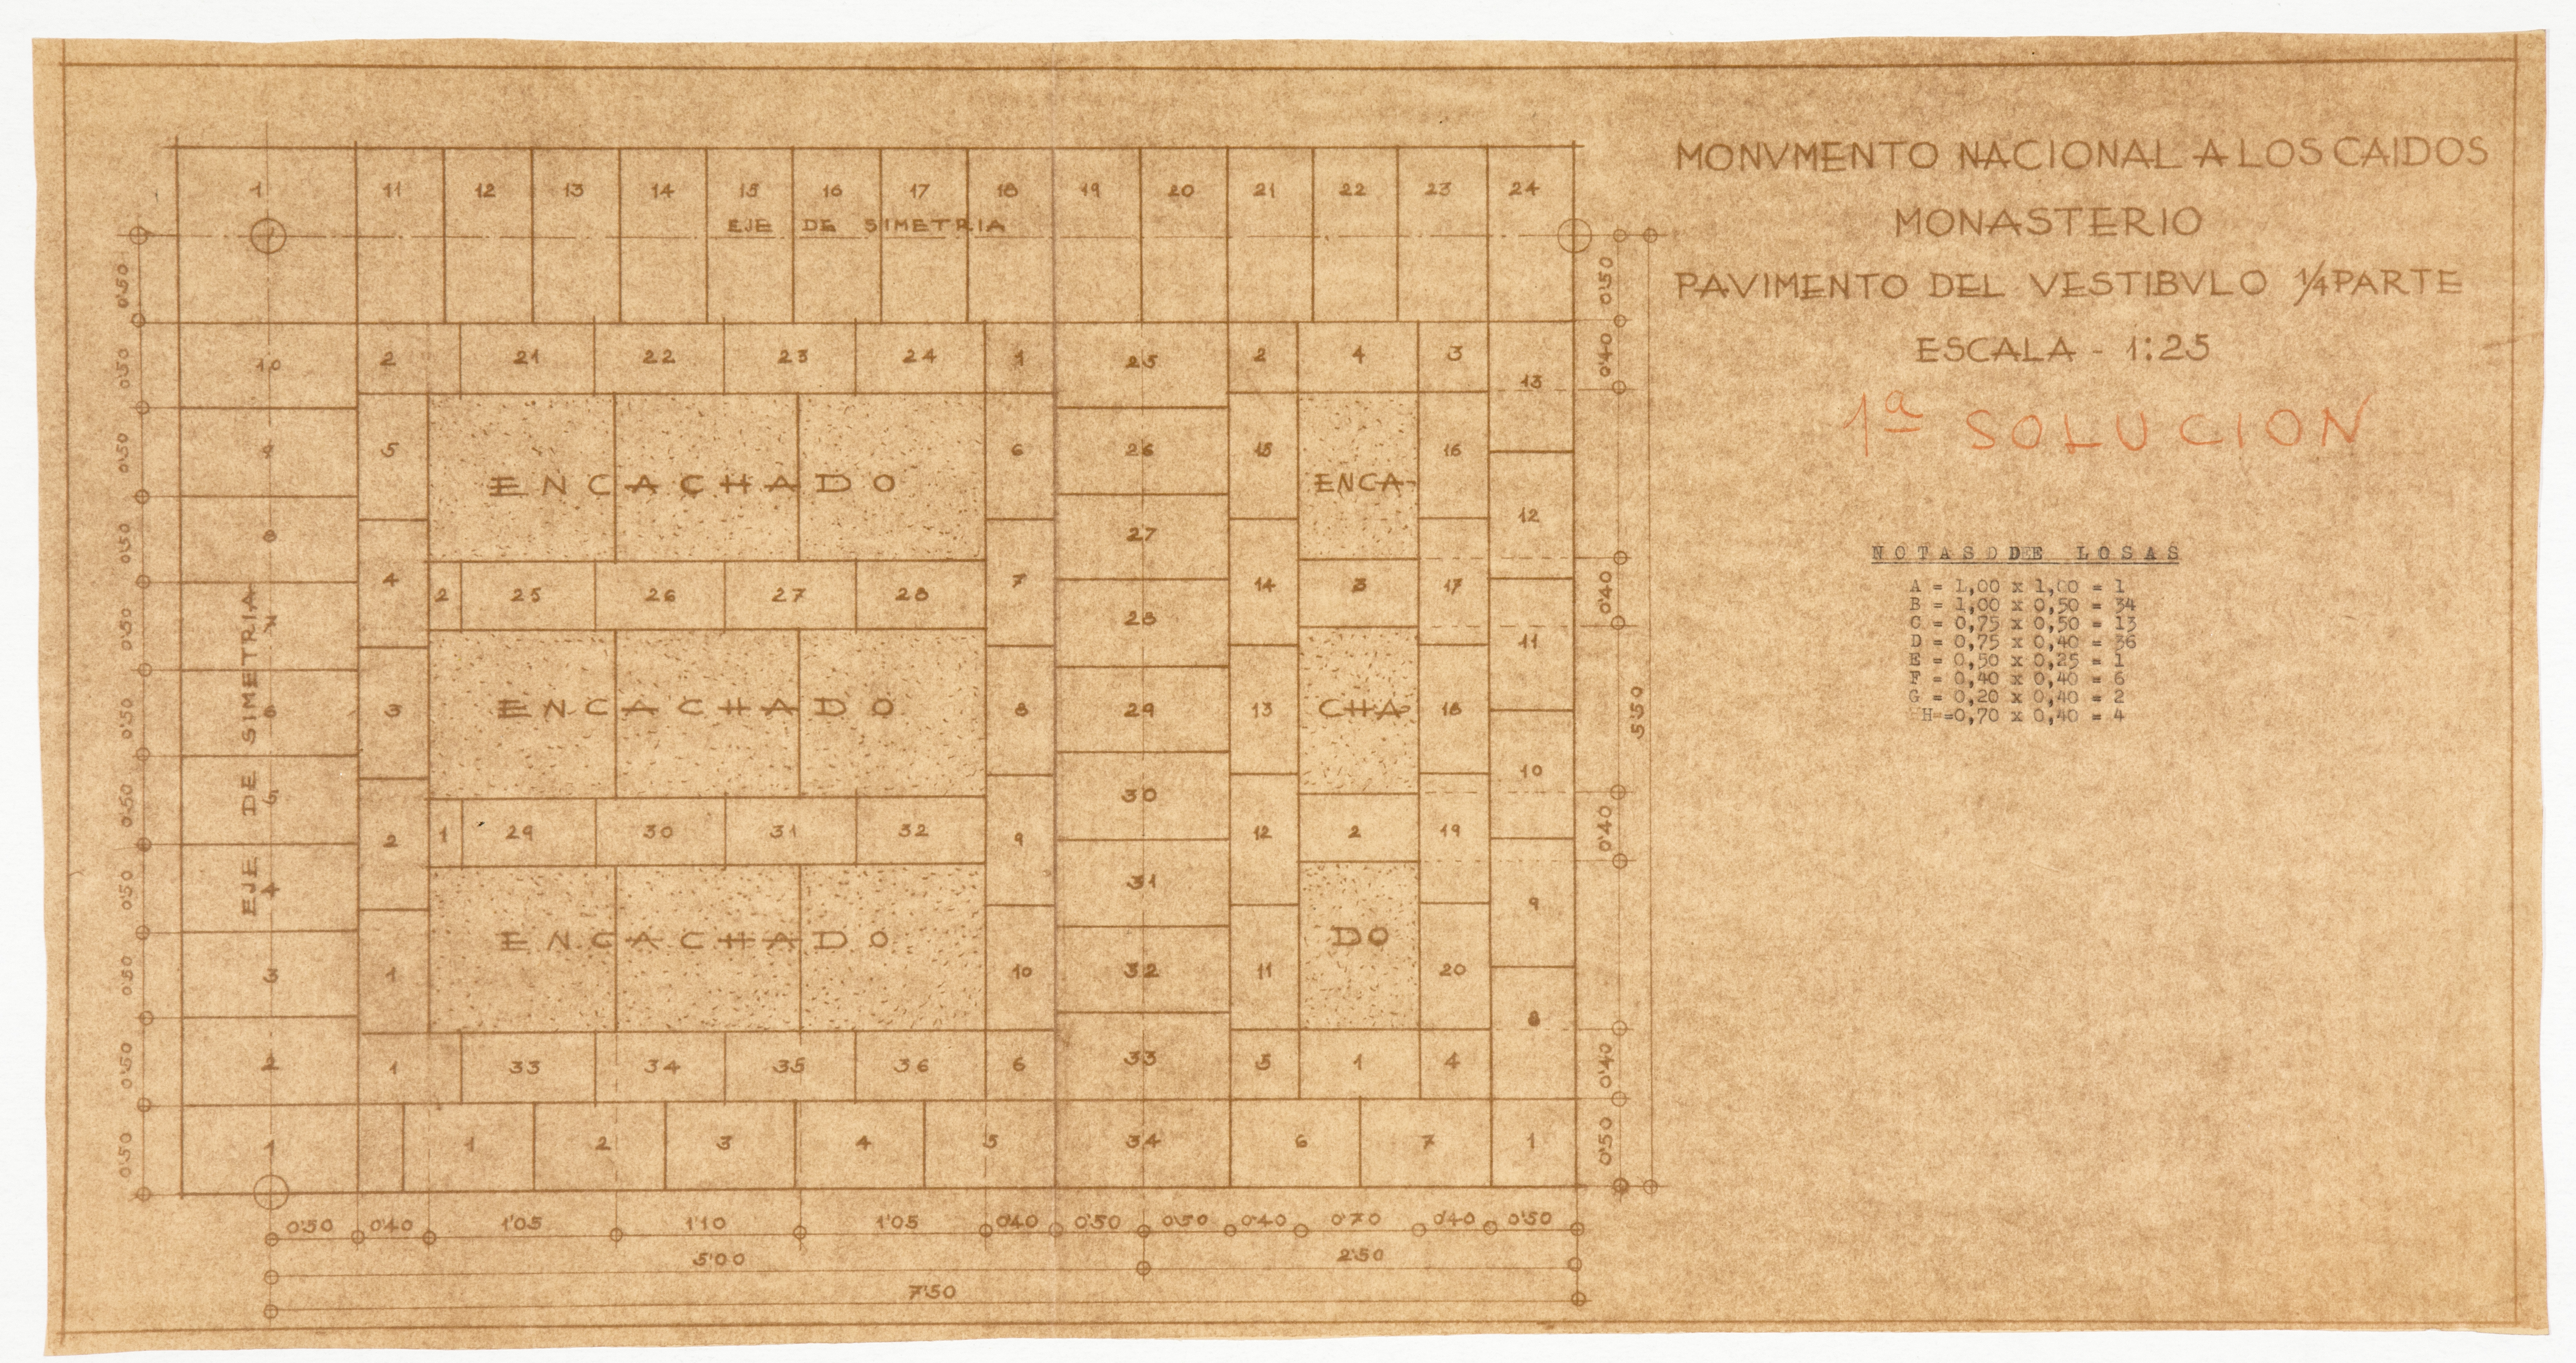 MONVMENTO NACIONAL A LOS CAIDOS
MONASTERIO
PAVIMENTO DEL VESTIBVLO 1/4 PARTE
ESCALA - 1:25
1ª SOLUCION
N O T A S D DE L O S A S
A = 1,00 x 1,00 = 1
B = 1,00 x 0,50 = 34
C = 0,75 x 0,50 = 13
D = 0,75 x 0,40 = 36
E = 0,50 x 0,25 = 1
F = 0,40 x 0,40 = 6
G = 0,20 x 0,40 = 2
H = 0,70 x 0,40 = 4
1 11 12 13 14 15 16 17 18 19 20 21 22 23 24
EJE DE SIMETRIA
0'50 0'50
10 2 21 22 23 24 1 25 2 4 3 13
0'50 0'40
9 5 6 26 15 16
0'50
ENCACHADO ENCA-
8 27 12
0'50
4 2 25 26 27 28 7 28 14 3 17
0'50 0'40
7 11
EJE DE SIMETRIA
6 3 ENCACHADO 8 29 13 CHA- 18
0'50 5'50
5 30 10
0'50
2 1 29 30 31 32 9 12 2 19
0'40
4 31 9
0'50
ENCACHADO DO
3 1 10 32 11 20
0'50
8
2 1 33 34 35 36 6 33 5 1 4
0'50 0'40
1 1 2 3 4 5 34 6 7 1
0'50 0'50
0'50 0'40 1'05 1'10 1'05 0'40 0'50 0'50 0'40 0'70 0'40 0'50
5'00 2'50
7'50